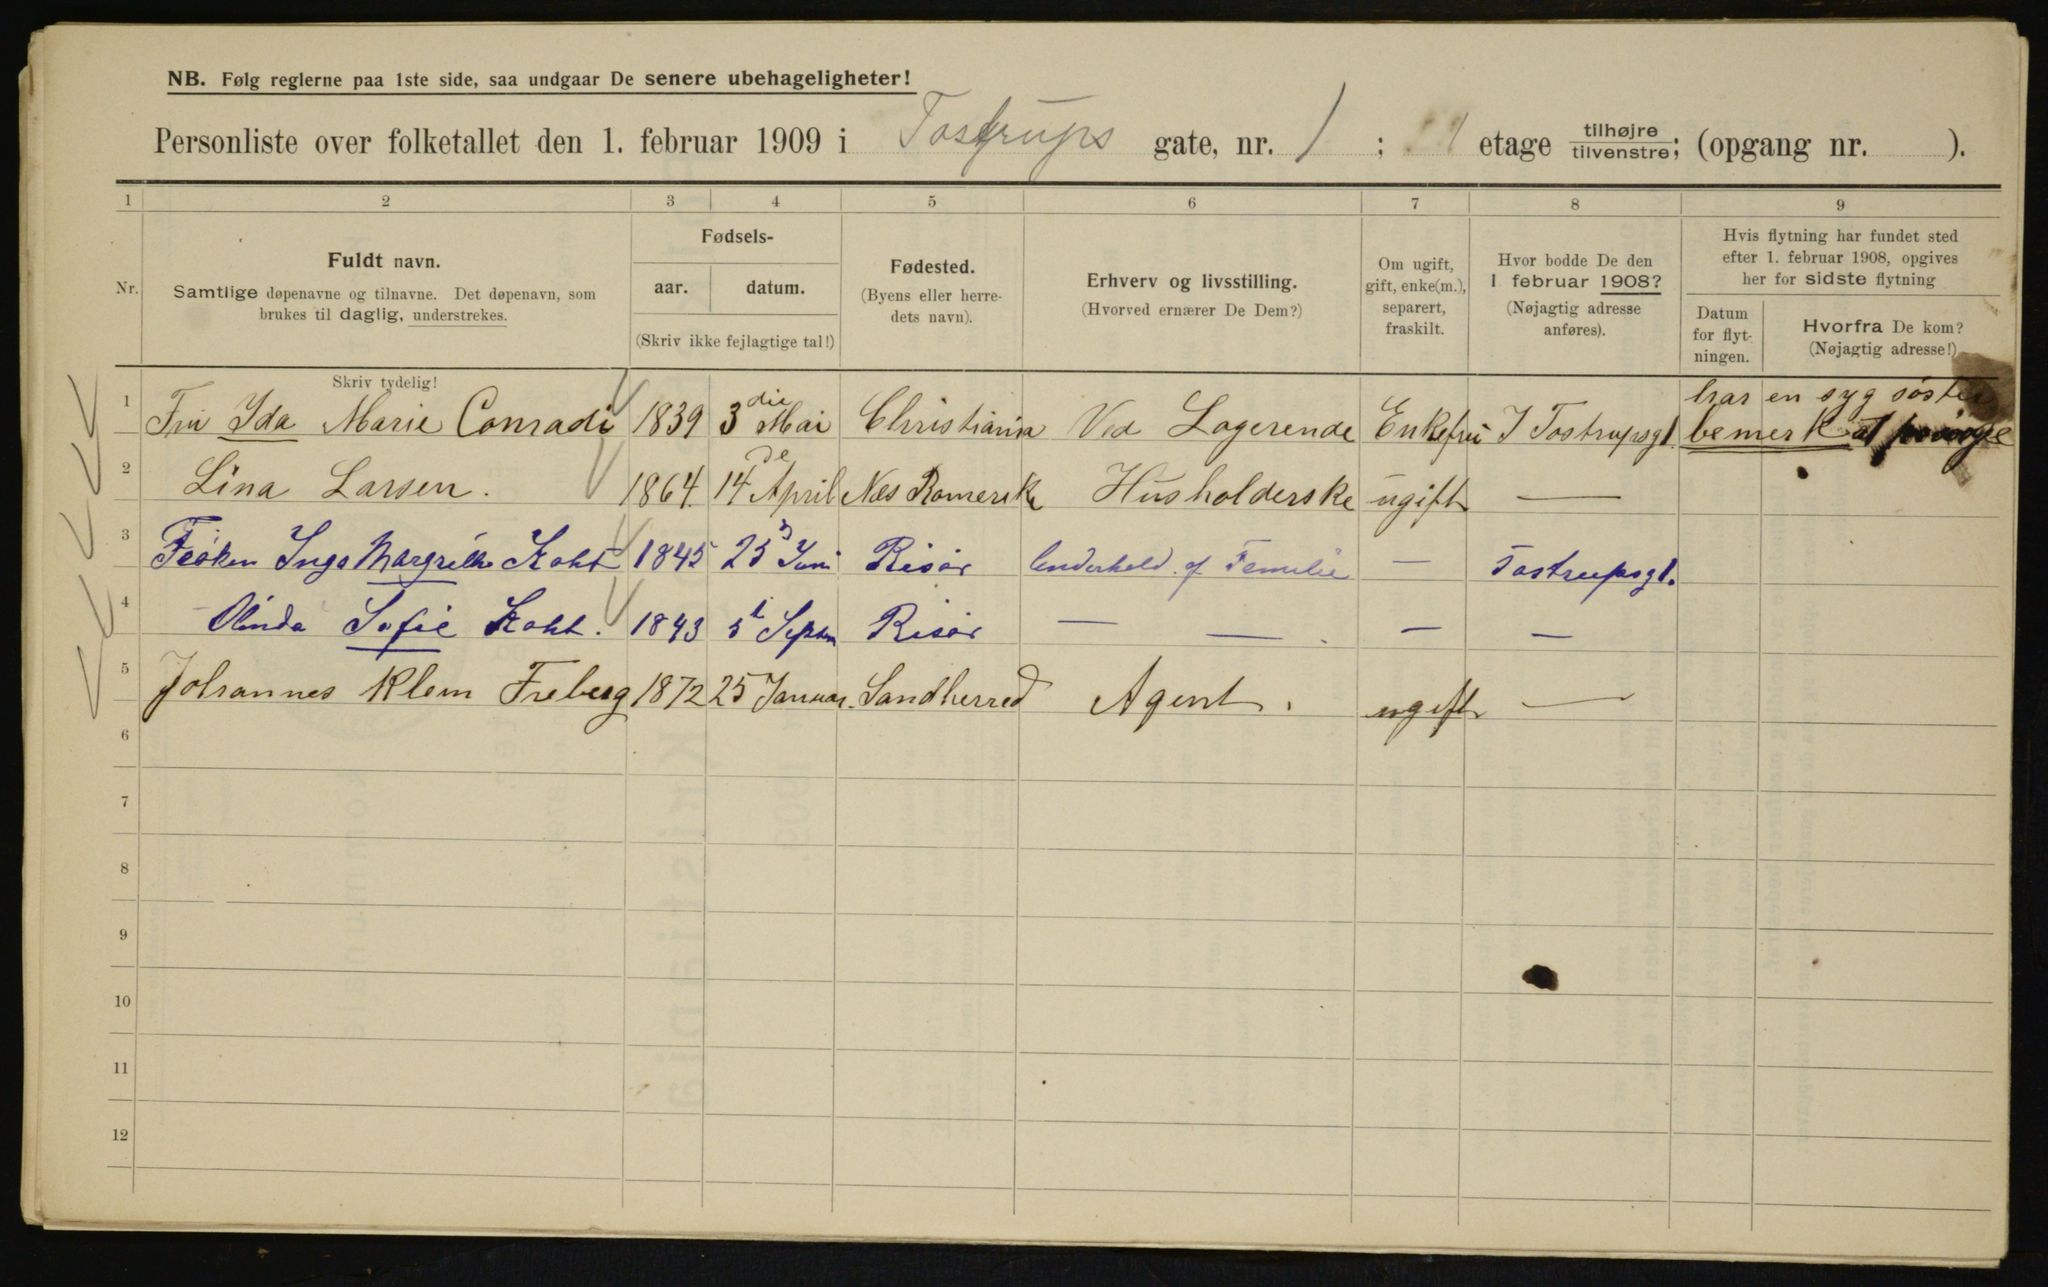 NB. Følg reglerne paa 1ste side, saa undgaar De senere ubehageligheter!
Personliste over folketallet den 1. februar 1909 i Tostrups gate, nr. 1 ; 1 etage tilhøjre tilvenstre; (opgang nr. ).
1 2 3 4 5 6 7 8 9
Nr.
Fuldt navn.
Samtlige døpenavne og tilnavne. Det døpenavn, som
brukes til daglig, understrekes.
Skriv tydelig!
Fødsels-
aar. datum.
(Skriv ikke fejlagtige tal!)
Fødested.
(Byens eller herre-
dets navn).
Erhverv og livsstilling.
(Hvorved ernærer De Dem?)
Om ugift,
gift, enke(m.),
separert,
fraskilt.
Hvor bodde De den
1 februar 1908?
(Nøjagtig adresse
anføres).
Hvis flytning har fundet sted
efter 1. februar 1908, opgives
her for sidste flytning
Datum
for flyt-
ningen.
Hvorfra De kom?
(Nøjagtig adresse!)
har en syg søster
1 Fru Ida Marie Conradi 1839 3die Mai Christiania Ved Logerende Enkefru I Tostrupsgt. bemerk at
2 Lina Larsen. 1864. 14de April Nes Romerike Husholderske ugift —
3 Frøken Inga Margrethe Koht 1845 23 Juni Risør Underhold af Familie — Tostrupsgt.
4 Sofie Koht. 1843 5t Septem Risør — — . — —
5 Johannes Klem Freberg 1872 25 Januar. Sandherred Agent. ugift —
6
7
8
9
10
11
12